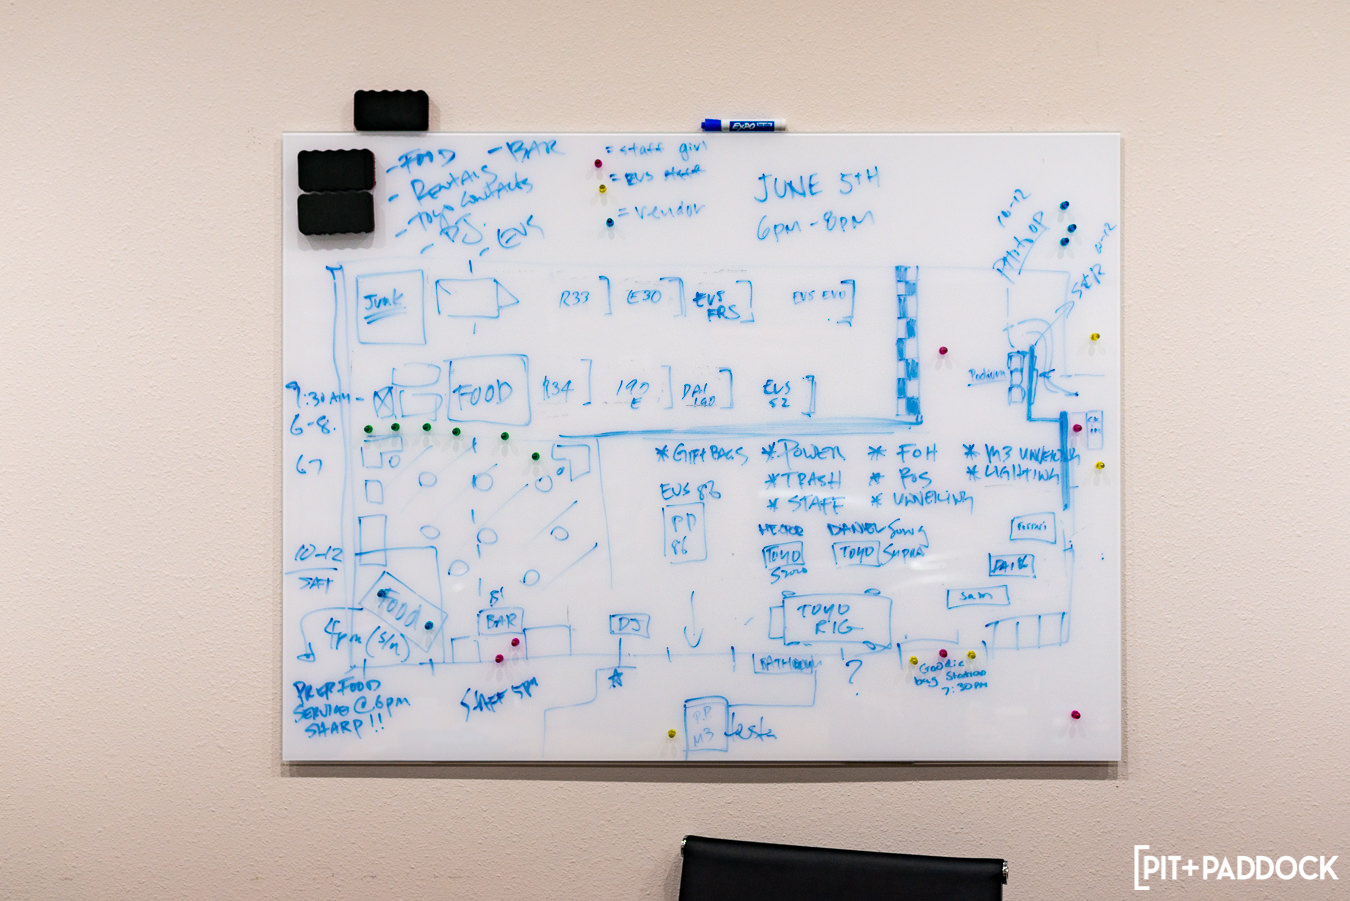 EXPO
- FOOD - BAR
- RENTALS
- TOYO CONTACTS
- DJ. - EVS
= staff girl
= EVS
= vendor
JUNE 5TH
6PM - 8PM
10-12
10-12
JUNK
R33
E30
EVS
FRS
EVS EVO
Podium
9:30AM -
6-8.
67
FOOD
R34
190
E
DAI
190
EVS
S2
* GIFT BAGS
* POWER
* TRASH
* STAFF
* FOH
* POS
* UNVEILING
* M3 UNVEILING
* LIGHTING
EVS 86
PP
86
TOYO
S2000
DANIEL Song
TOYO
Supra
Ferrari
Sam
10-12
SAT
FOOD
4pm (S/N)
BAR
DJ
TOYO
RIG
BATHROOM
?
Goodie
bag Station
7:30PM
PREP FOOD
SERVICE @ 6pm
SHARP!!
STAFF 5PM
PP
M3
[PIT+PADDOCK